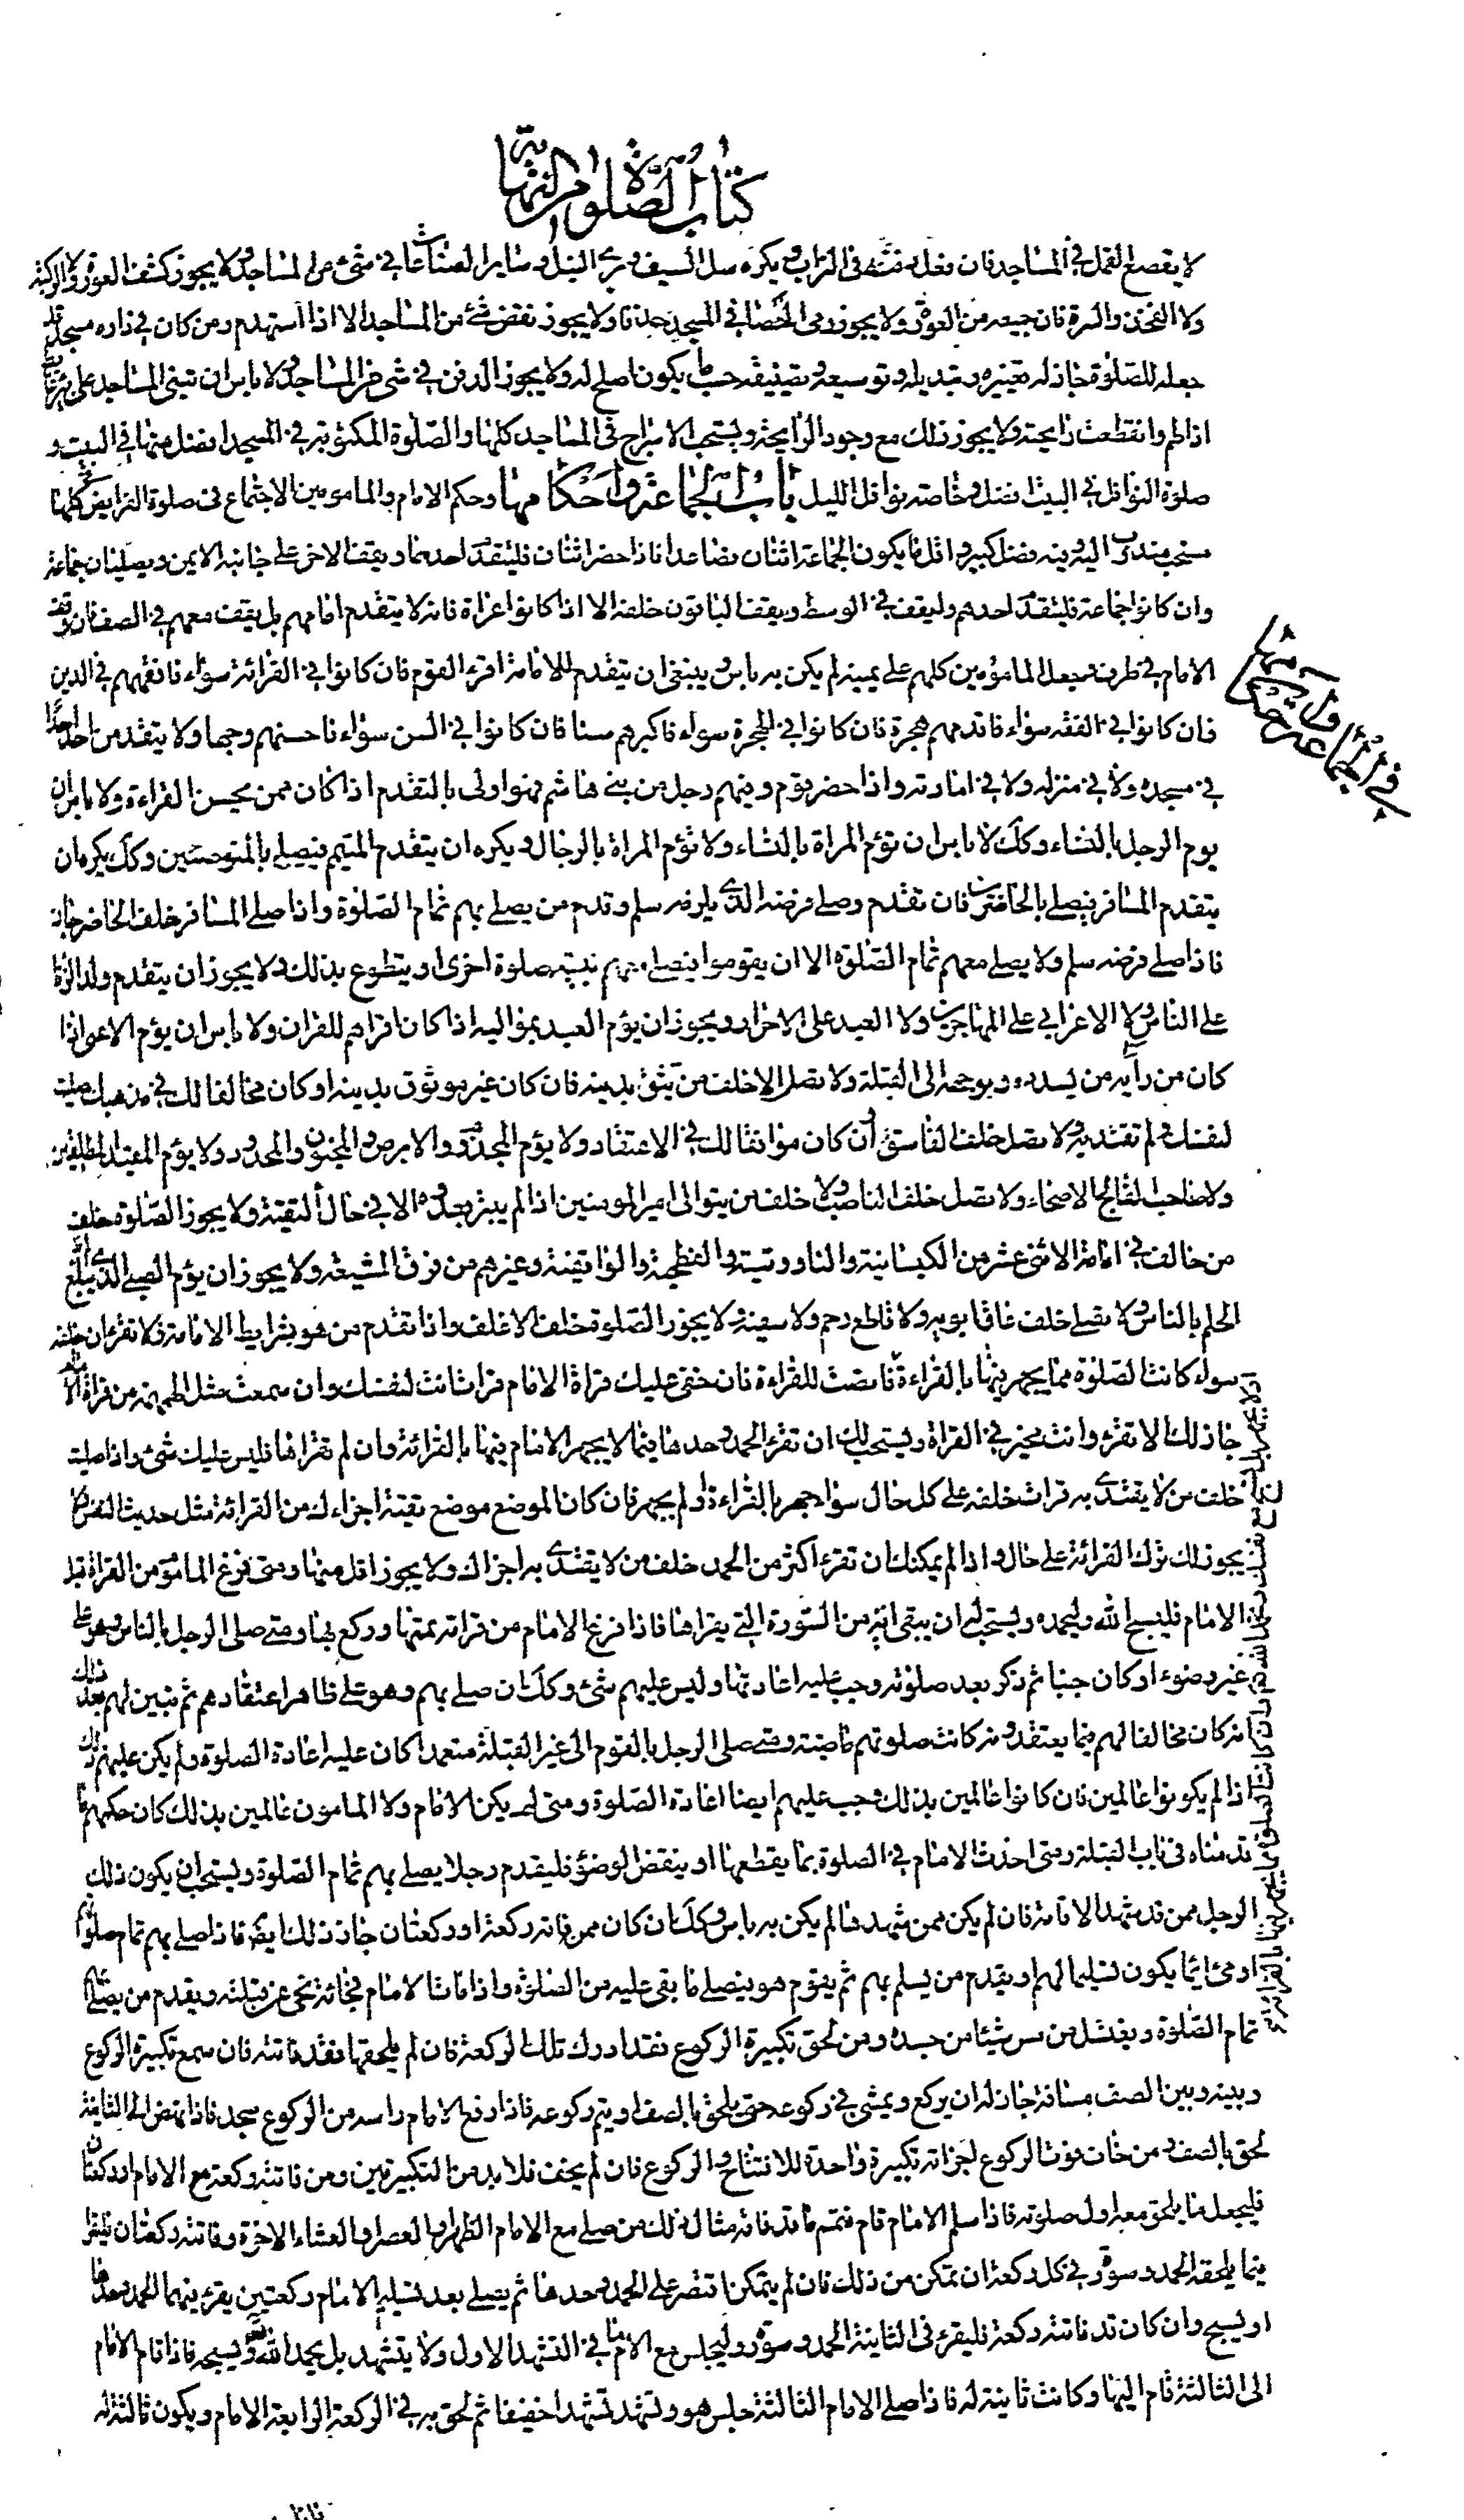 كتاب الصلوة من النهاية
لا يقصع القمل في المساجد فان فعله دفنه في التراب ويكره سل السيف وبرى النبل وساير الصناعات في شئ من المساجد ولا يجوز كشف العورة ولا الركبة
ولا الفخذ والسرة فان جميعه من العورة ولا يجوز رمى الحصا في المسجد حذفا ولا يجوز نقض شئ من المساجد الا اذا استهدم ومن كان في داره مسجد قد
جعله للصلوة جاز له تغييره وتبديله وتوسيعه وتضييقه حسب ما يكون اصلح له ولا يجوز الدفن في شئ من المساجد ولا باس ان تبنى المساجد على بئر غائط
اذا طم وانقطعت رايحته ولا يجوز ذلك مع وجود الرايحة ويستحب الاسراج في المساجد كلها والصلوة المكتوبة في المسجد افضل منها في البيت و
صلوة النوافل في البيت افضل وخاصة نوافل الليل باب الجماعة واحكامها وحكم الامام والمامومين الاجتماع في صلوة الفرايض كلها
مستحب مندوب اليه وفيه فضل كبير واقل ما يكون الجماعة اثنان فصاعدا فاذا حضر اثنان فليتقدم احدهما ويقف الاخر على جانبه الايمن ويصليان جماعة
وان كانوا جماعة فليتقدم احدهم وليقف في الوسط ويقف الباقون خلفه الا اذا كانوا عراة فانه لا يتقدم امامهم بل يقف معهم في الصف فان وقف
الامام في طرف وجعل المامومين كلهم على يمينه لم يكن به باس وينبغى ان يتقدم للامامة اقرء القوم فان كانوا في القرائة سواء فافقههم في الدين
فان كانوا في الفقه سواء فاقدمهم هجرة فان كانوا في الهجرة سواء فاكبرهم سنا فان كانوا في السن سواء فاحسنهم وجها ولا يتقدمن احد احدا
في مسجده ولا في منزله ولا في امارته واذا حضر قوم وفيهم رجل من بنى هاشم فهو اولى بالتقدم اذا كان ممن يحسن القراءة ولا باس ان
يوم الرجل بالنساء وكك لا باس ان تؤم المراة بالنساء ولا تؤم المراة بالرجال ويكره ان يتقدم المتيمم فيصلى بالمتوضئين وكك يكره ان
يتقدم المسافر فيصلى بالحاضرين فان تقدم وصلى فرضه الذى يلزمه سلم وقدم من يصلى بهم تمام الصلوة واذا صلى المسافر خلف الحاضر جاز
فاذا صلى فرضه سلم ولا يصلى معهم تمام الصلوة الا ان يقوموا فيصلى معهم بنية صلوة اخرى او يتطوع بذلك ولا يجوز ان يتقدم ولد الزنا
على الناس ولا الاعرابى على المهاجرين ولا العبد على الاحرار ويجوز ان يؤم العبد بمواليه اذا كان اقراهم للقران ولا باس ان يؤم الاعمى اذا
كان من ورائه من يسدده ويوجهه الى القبلة ولا تصل الا خلف من تثق بدينه فان كان غير موثوق بدينه او كان مخالفا لك في مذهبك صليت
لنفسك ولم تقتد به ولا تصل خلف الفاسق وان كان موافقا لك في الاعتقاد ولا يؤم المجذوم والابرص والمجنون والمحدود ولا يؤم المقيد المطلقين
ولا صاحب الفالج الاصحاء ولا تصل خلف الناصب ولا خلف من يتوالى امير المومنين اذا لم يتبرء من عدوه الا في حال التقية ولا يجوز الصلوة خلف
من خالف في امامة الاثنى عشر من الكيسانية والناووسية والفطحية والواقفية وغيرهم من فرق الشيعة ولا يجوز ان يؤم الصبى الذى لم يبلغ
الحلم بالناس ولا تصلى خلف عاق ابويه ولا قاطع رحم ولا سفيه ولا يجوز الصلوة خلف الاغلف واذا تقدم من هو بشرايط الامامة فلا تقرءن خلفه
سواء كانت الصلوة مما يجهر فيها بالقراءة فانصت للقراءة فان خفى عليك قراة الامام قرات انت لنفسك وان سمعت مثل الهمهمة من قراة الامام
جاز لك الا تقرء وانت مخير في القراة ويستحب لك ان تقرء الحمد وحدها فيما لا يجهر الامام فيها بالقرائة وان لم تقراها فليس عليك شئ واذا صليت
خلف من لا يقتدى به قرات خلفه على كل حال سواء جهر بالقراءة او لم يجهر فان كان الموضع موضع تقية اجزاءك من القرائة مثل حديث النفس ولا
يجوز لك ترك القرائة على حال واذا لم يمكنك ان تقرء اكثر من الحمد خلف من لا يقتدى به اجزاك ولا يجوز اقل منها ومتى فرغ الماموم من القراة قبل
الامام فليسبح الله وليحمده ويستحب له ان يبقى اية من السورة التى يقراها فاذا فرغ الامام من قراته تممها وركع بها ومتى صلى الرجل بالناس وهو على
غير وضوء او كان جنبا ثم ذكر بعد صلوته وجب عليه اعادتها وليس عليهم شئ وكك ان صلى بهم وهو على ظاهر اعتقادهم ثم تبين لهم بعد ذلك
انه كان مخالفا لهم فيما يعتقدونه كانت صلوتهم ماضية ومتى صلى الرجل بالقوم الى غير القبلة متعمدا كان عليه اعادة الصلوة ولم يكن عليهم ذلك
اذا لم يكونوا عالمين فان كانوا عالمين بذلك وجب عليهم ايضا اعادة الصلوة ومتى لم يكن الامام ولا المامون عالمين بذلك كان حكمهم ما
قدمناه في باب القبلة ومتى احدث الامام في الصلوة بما يقطعها او ينقض الوضؤ فليقدم رجلا يصلى بهم تمام الصلوة ويستحب ان يكون ذلك
الرجل ممن قد شهد الاقامة فان لم يكن ممن شهدها لم يكن به باس وكك ان كان ممن فاته ركعة او ركعتان جاز ذلك ايضا فاذا صلى بهم تمام صلوتهم
اومئ ايما يكون تسليما لهم او يقدم من يسلم بهم ثم يقوم هو فيصلى ما بقى عليه من الصلوة واذا مات الامام فجائة نحى عن قبلته ويقدم من يصلى بهم
تمام الصلوة ويغتسل من مس شيئا من جسده ومن لحق تكبيرة الركوع فقد ادرك تلك الركعة فان لم يلحقها فقد فاتته فان سمع تكبيرة الركوع
وبينه وبين الصف مسافة جاز له ان يركع ويمشى في ركوعه حتى يلحق بالصف او يتم ركوعه فاذا رفع الامام راسه من الركوع سجد فاذا نهض الى الثانية
لحق بالصف ومن خاف فوت الركوع اجزاته تكبيرة واحدة للافتتاح والركوع فان لم يخف فلا بد من التكبيرتين ومن فاتته ركعة مع الامام او ركعتان
فليجعل ما يلحق معه اول صلوته فاذا سلم الامام قام فتمم ما قد فاته مثال ذلك من صلى مع الامام الظهر او العصر او العشاء الاخرة وفاتته ركعتان فليقرا
فيما يلحقه الحمد وسورة في كل ركعة ان تمكن من ذلك فان لم يتمكن اقتصر على الحمد وحدها ثم يصلى بعد تسليم الامام ركعتين يقرء فيهما الحمد وحدها
او يسبح وان كان قد فاتته ركعة فليقرء في الثانية الحمد وسورة وليجلس مع الامام في التشهد الاول ولا يتشهد بل يحمد الله تعالى ويسبحه فاذا قام الامام
الى الثالثة قام اليها وكانت ثانية له فاذا صلى الامام الثالثة جلس هو وتشهد تشهدا خفيفا ثم لحق به في الركعة الرابعة للامام ويكون ثالثة له